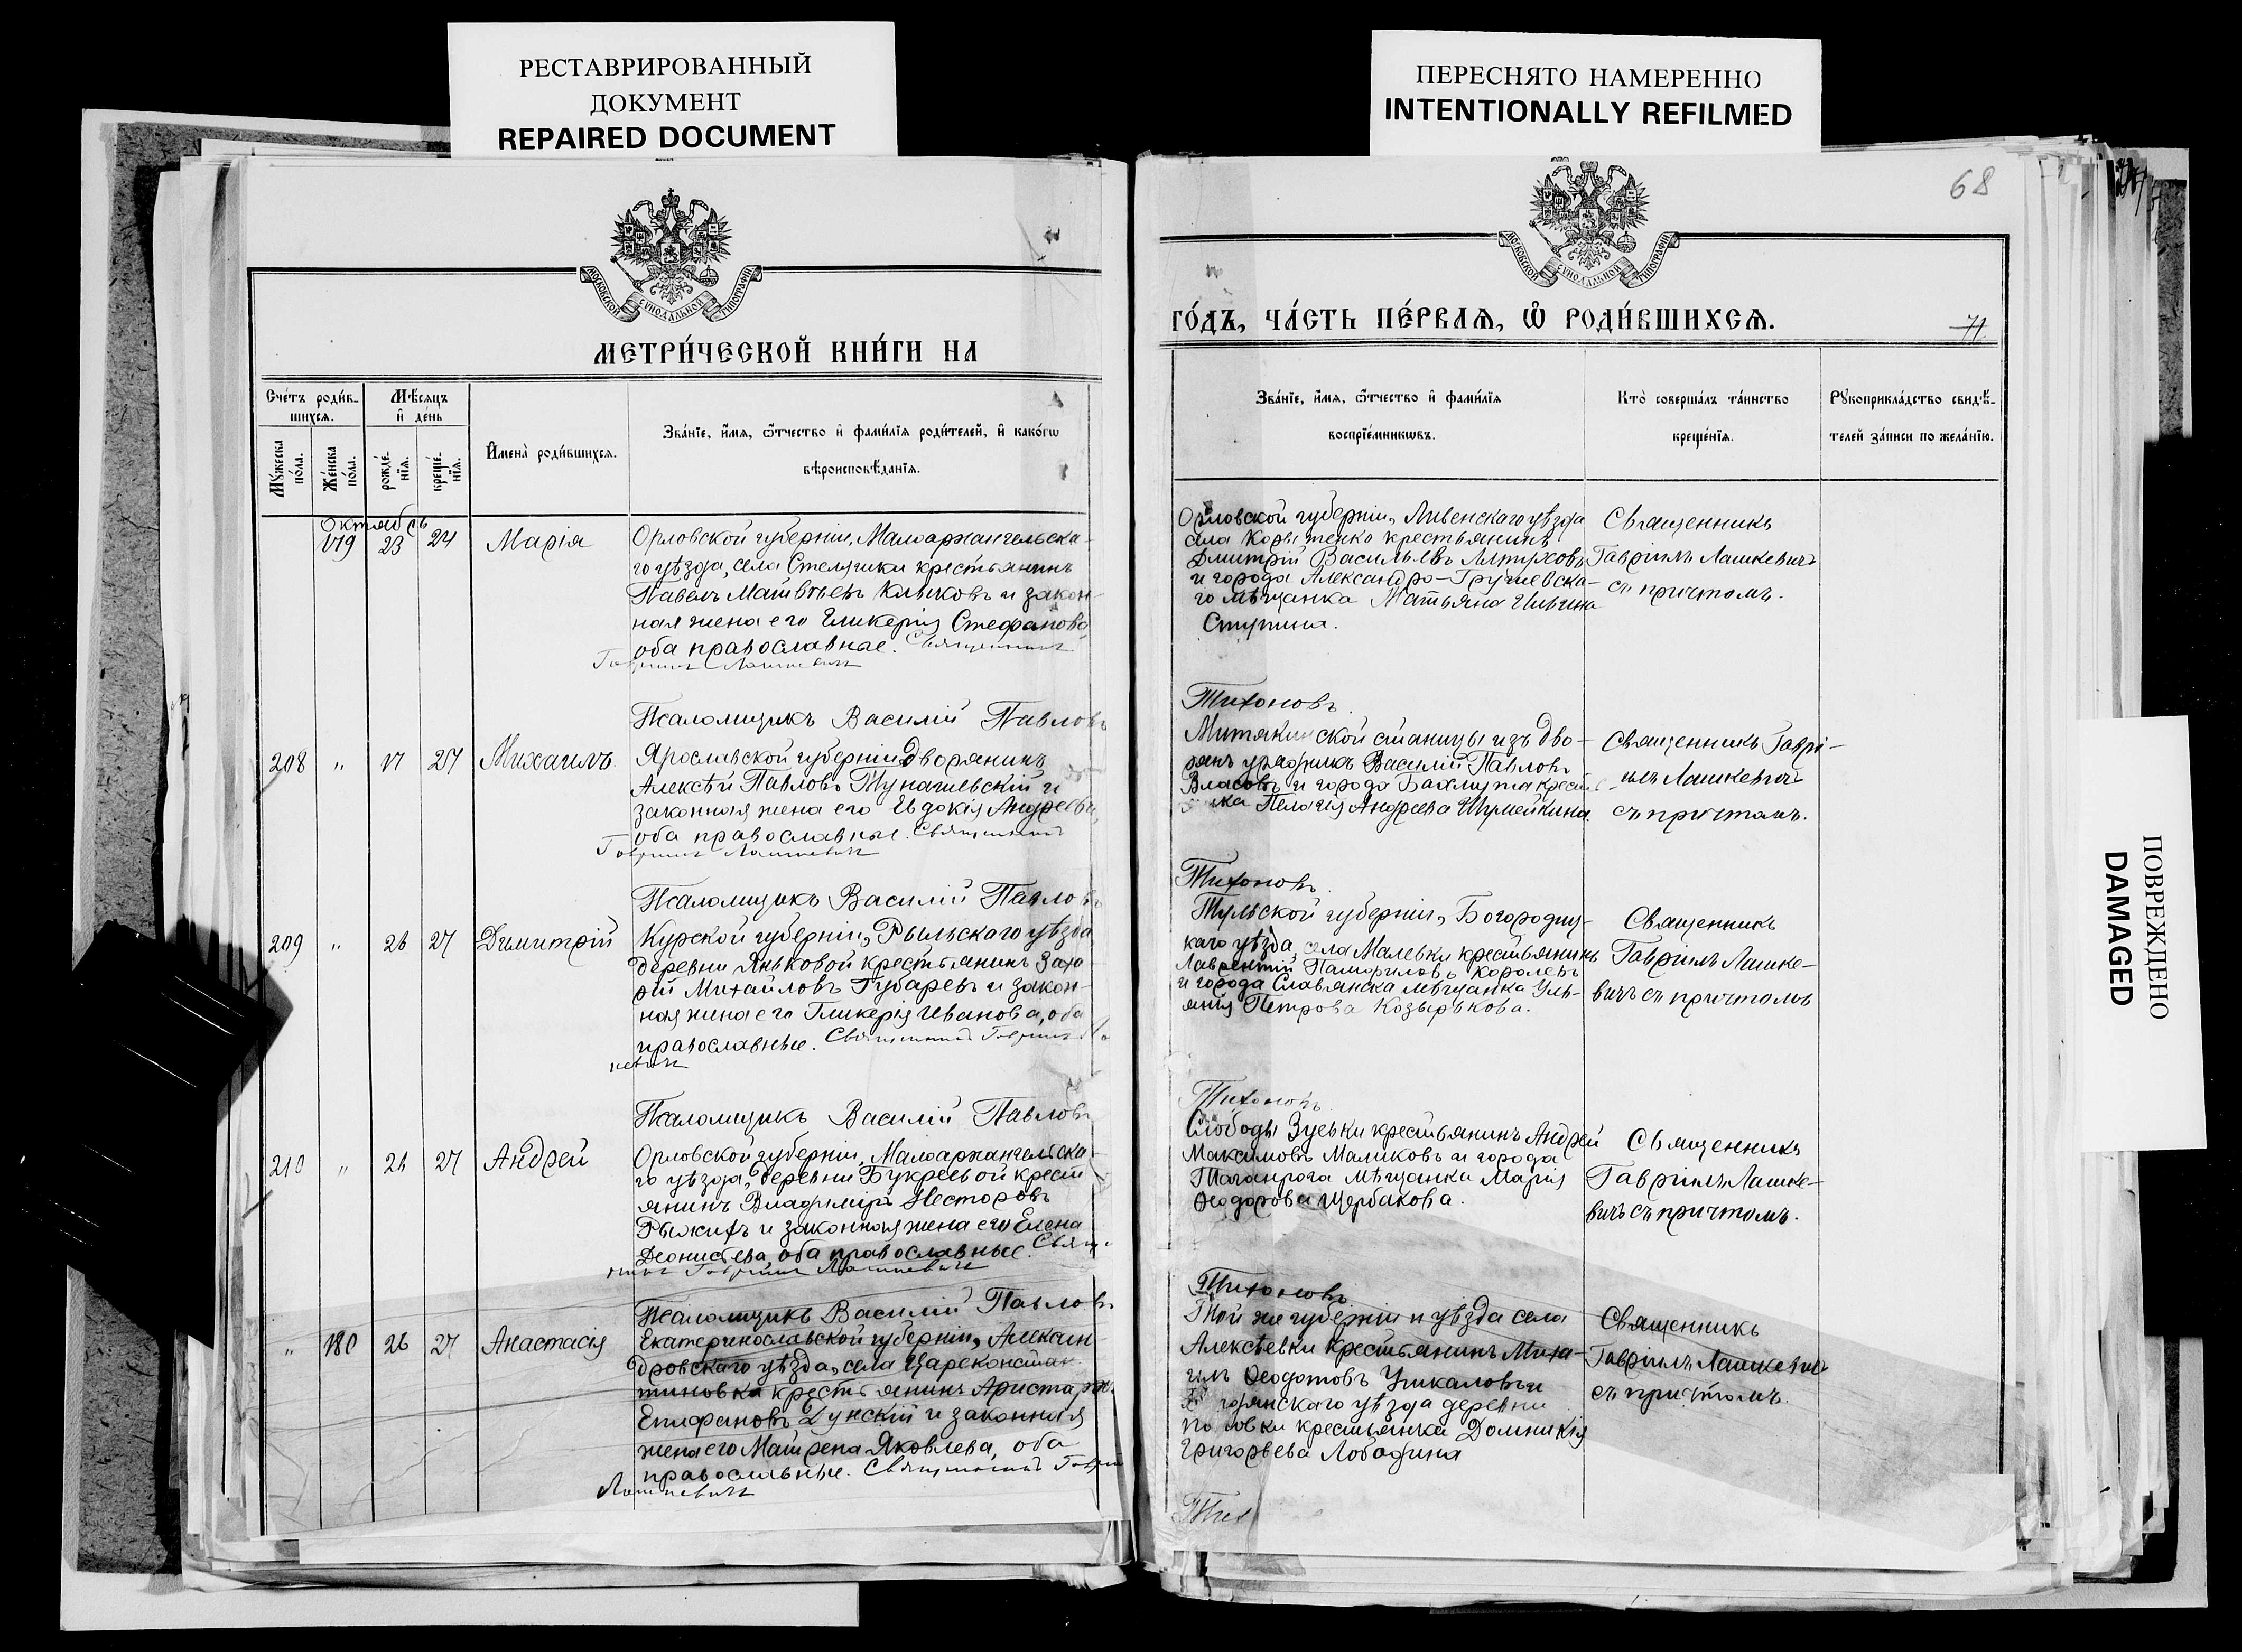 РЕСТАВРИРОВАННЫЙ
ДОКУМЕНТ
REPAIRED DOCUMENT
ПЕРЕСНЯТО НАМЕРЕННО
INTENTIONALLY REFILMED
МОСКОВСКОЙ СѴНОДАЛЬНОЙ ТИПОГРАФІИ
МЕТРИ́ЧЕСКОЙ КНИ́ГИ НА
Сче́тъ роди́в-
шихсѧ.
Мѣ́сѧцъ
и҆ де́нь
Мꙋ́жеска
по́ла.
Же́нска
по́ла.
рожде́-
нїѧ.
креще́-
нїѧ.
И҆мена̀ роди́вшихсѧ.
Зва́нїе, и҆́мѧ, ѻ҆́тчество и҆ фамѝлїѧ роди́телей, и҆ како́гѡ
вѣроисповѣ́данїѧ.
Октябрь
179 23 24 Марія
Орловской губерніи, Малоархангельска-
го уѣзда, села крестьянинъ
Павелъ Матвѣевъ Клычковъ и закон-
ная жена его Гликерія Стефанова,
оба православные. Священникъ
Гавріилъ Лашкевичъ
Псаломщикъ Василій Павловъ
208 " 17 27 Михаилъ
Ярославской губерніи дворянинъ
Алексѣй Павловъ и
законная жена его Евдокія Андреева,
оба православные. Священникъ
Гавріилъ Лашкевичъ
Псаломщикъ Василій Павловъ
209 " 26 27 Димитрій
Курской губерніи, Рыльскаго уѣзда
деревни Яньковой крестьянинъ Заха-
рій Михайловъ Губаревъ и закон-
ная жена его Гликерія Иванова, оба
православные. Священникъ Гавріилъ Ла
кевичъ
Псаломщикъ Василій Павловъ
210 " 26 27 Андрей
Орловской губерніи, Малоархангельска-
го уѣзда, деревни Букреевой крест
янинъ Владиміръ Несторовъ
Рыжихъ и законная жена его Елена
Деонисіева, оба православные. Священ-
никъ Гавріилъ Лашкевичъ
Псаломщикъ Василій Павловъ
" 180 26 27 Анастасія
Екатеринославской губерніи, Алексан-
дровскаго уѣзда, села Цареконстан-
тиновка крестьянинъ Аристархъ
Епифановъ Дунскій и законная
жена его Матрена Яковлева, оба
православные. Священникъ Гавріилъ
Лашкевичъ
68
МОСКОВСКОЙ СѴНОДАЛЬНОЙ ТИПОГРАФІИ
ГО́ДЪ, ЧА́СТЬ ПЕ́РВАѦ, Ѡ҆ РОДИ́ВШИХСѦ.
71.
Зва́нїе, и҆́мѧ, ѻ҆́тчество и҆ фамѝлїѧ
воспрїе́мникѡвъ.
Кто̀ соверша́лъ та́инство
креще́нїѧ.
Рꙋкоприкла́дство свидѣ́-
телей за́писи по жела́нїю.
Орловской губерніи, Ливенскаго уѣзда
села крестьянинъ
Дмитрій Васильевъ Алтуховъ
и города Александро-Грушевска-
го мѣщанка Татьяна Ильина
Ступина.
Священникъ
Гавріилъ Лашкевичъ
съ причтомъ.
Тихоновъ
Митякинской станицы изъ дво-
рянъ урядникъ Василій Павловъ
Власовъ и города Бахмута крест
нка Пелагія Андреева Шумейкина.
Священникъ Гаврі-
илъ Лашкевичъ
съ причтомъ.
Тихоновъ
Тульской губерніи, Богородиц-
каго уѣзда, села Малевки крестьянинъ
Лаврентій Памфиловъ Королевъ
и города Славянска мѣщанка Уль-
янія Петрова Козырькова.
Священникъ
Гавріилъ Лашке-
вичъ съ причтомъ
Тихоновъ
Слободы Зуевки крестьянинъ Андрей
Максимовъ Маликовъ и города
Таганрога мѣщанка Марія
Ѳеодорова Щербакова.
Священникъ
Гавріилъ Лашке-
вичъ съ причтомъ.
Тихоновъ
Той же губерніи и уѣзда села
Алексѣевки крестьянинъ Миха-
илъ Ѳедотовъ Чикаловъ и
уѣзда деревни
крестьянка Домникія
Григорьева Лободина
Священникъ
Гавріилъ Лашкевичъ
съ причтомъ.
Тих
ПОВРЕЖДЕНО
DAMAGED